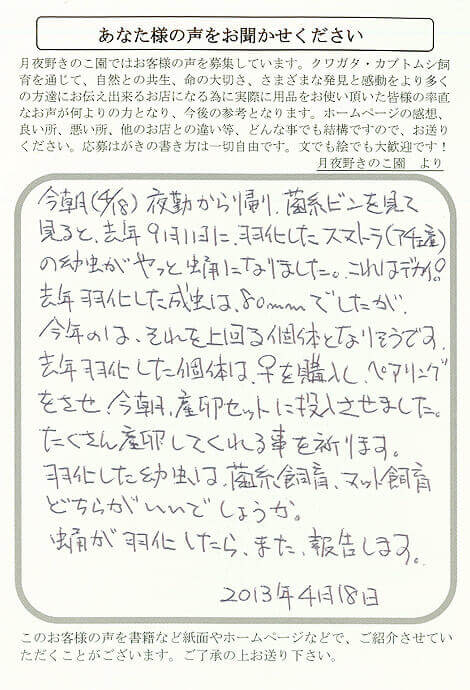 あなた様の声をお聞かせください
月夜野きのこ園ではお客様の声を募集しています。クワガタ・カブトムシ飼
育を通じて、自然との共生、命の大切さ、さまざまな発見と感動をより多く
の方達にお伝え出来るお店になる為に実際に用品をお使い頂いた皆様の率直
なお声が何よりの力となり、今後の参考となります。ホームページの感想、
良い所、悪い所、他のお店との違い等、どんな事でも結構ですので、お送り
ください。応募はがきの書き方は一切自由です。文でも絵でも大歓迎です！
月夜野きのこ園 より
今朝(4/18)夜勤から帰り、菌糸ビンを見て
見ると、去年9月11日に、羽化したスマトラ(アチェ産)
の幼虫がやっと蛹になりました。これはデカイ!!
去年羽化した成虫は、80mmでしたが、
今年のは、それを上回る個体となりそうです。
去年羽化した個体は、♀を購入し、ペアリング
をさせ、今朝、産卵セットに投入させました。
たくさん産卵してくれる事を祈ります。
羽化した幼虫は、菌糸飼育、マット飼育
どちらがいいでしょうか。
蛹が羽化したら、また、報告します。
2013年4月18日
このお客様の声を書籍など紙面やホームページなどで、ご紹介させてい
ただくことがございます。ご了承の上お送り下さい。